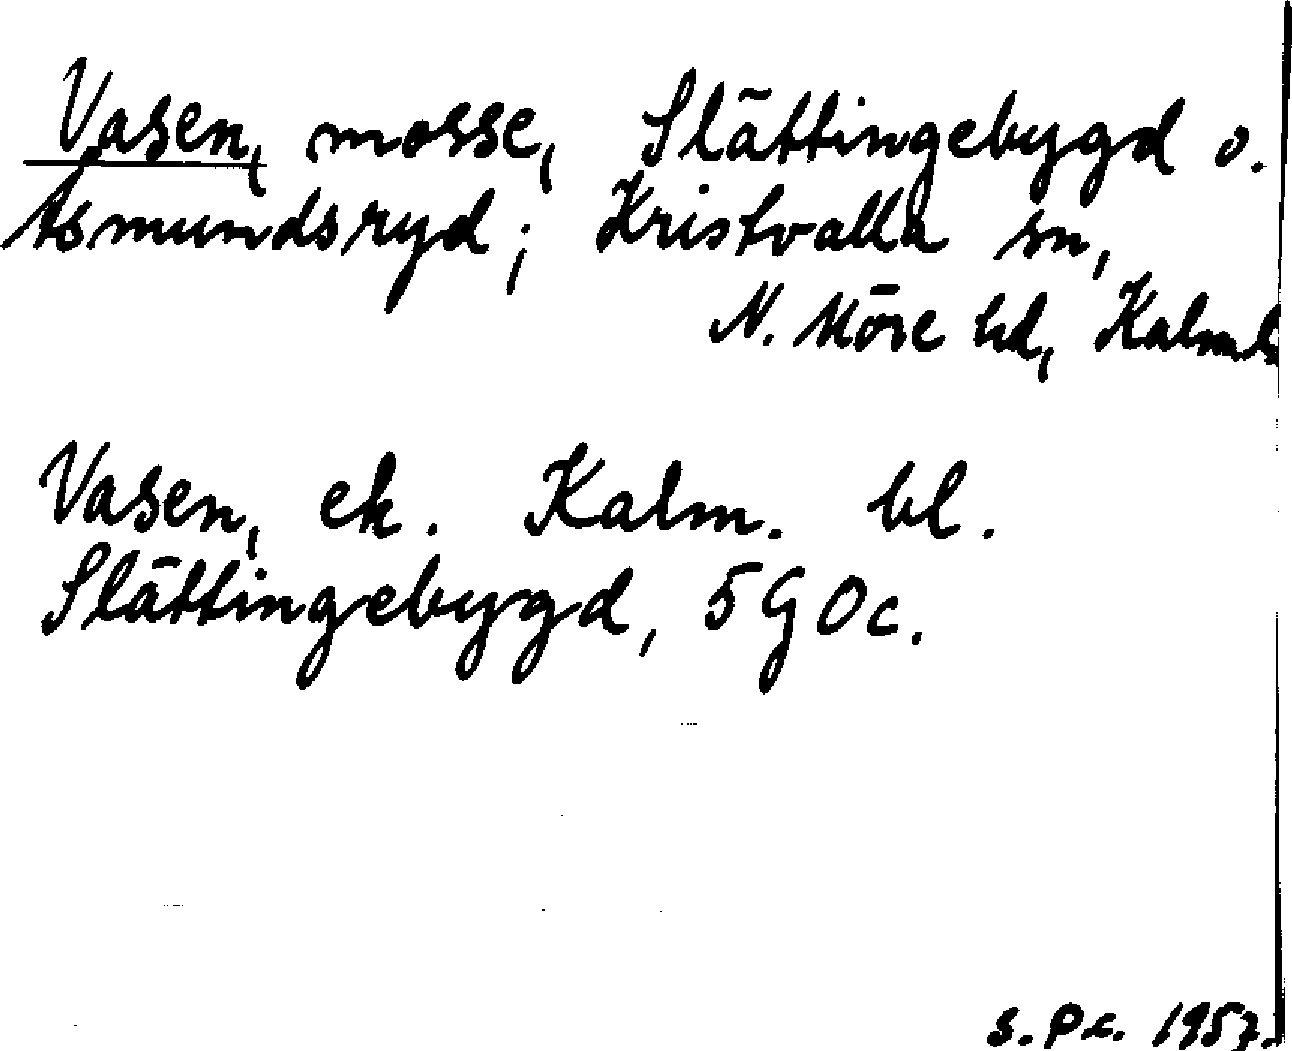 Vasen, mosse, Slättingebygd o.
Åsmundsryd; Kristvalla sn,
N. Möre hd, Kalm.l.
Vasen, ek. Kalm. bl.
Slättingebygd, 5G0c.
S. Pc. 1957.